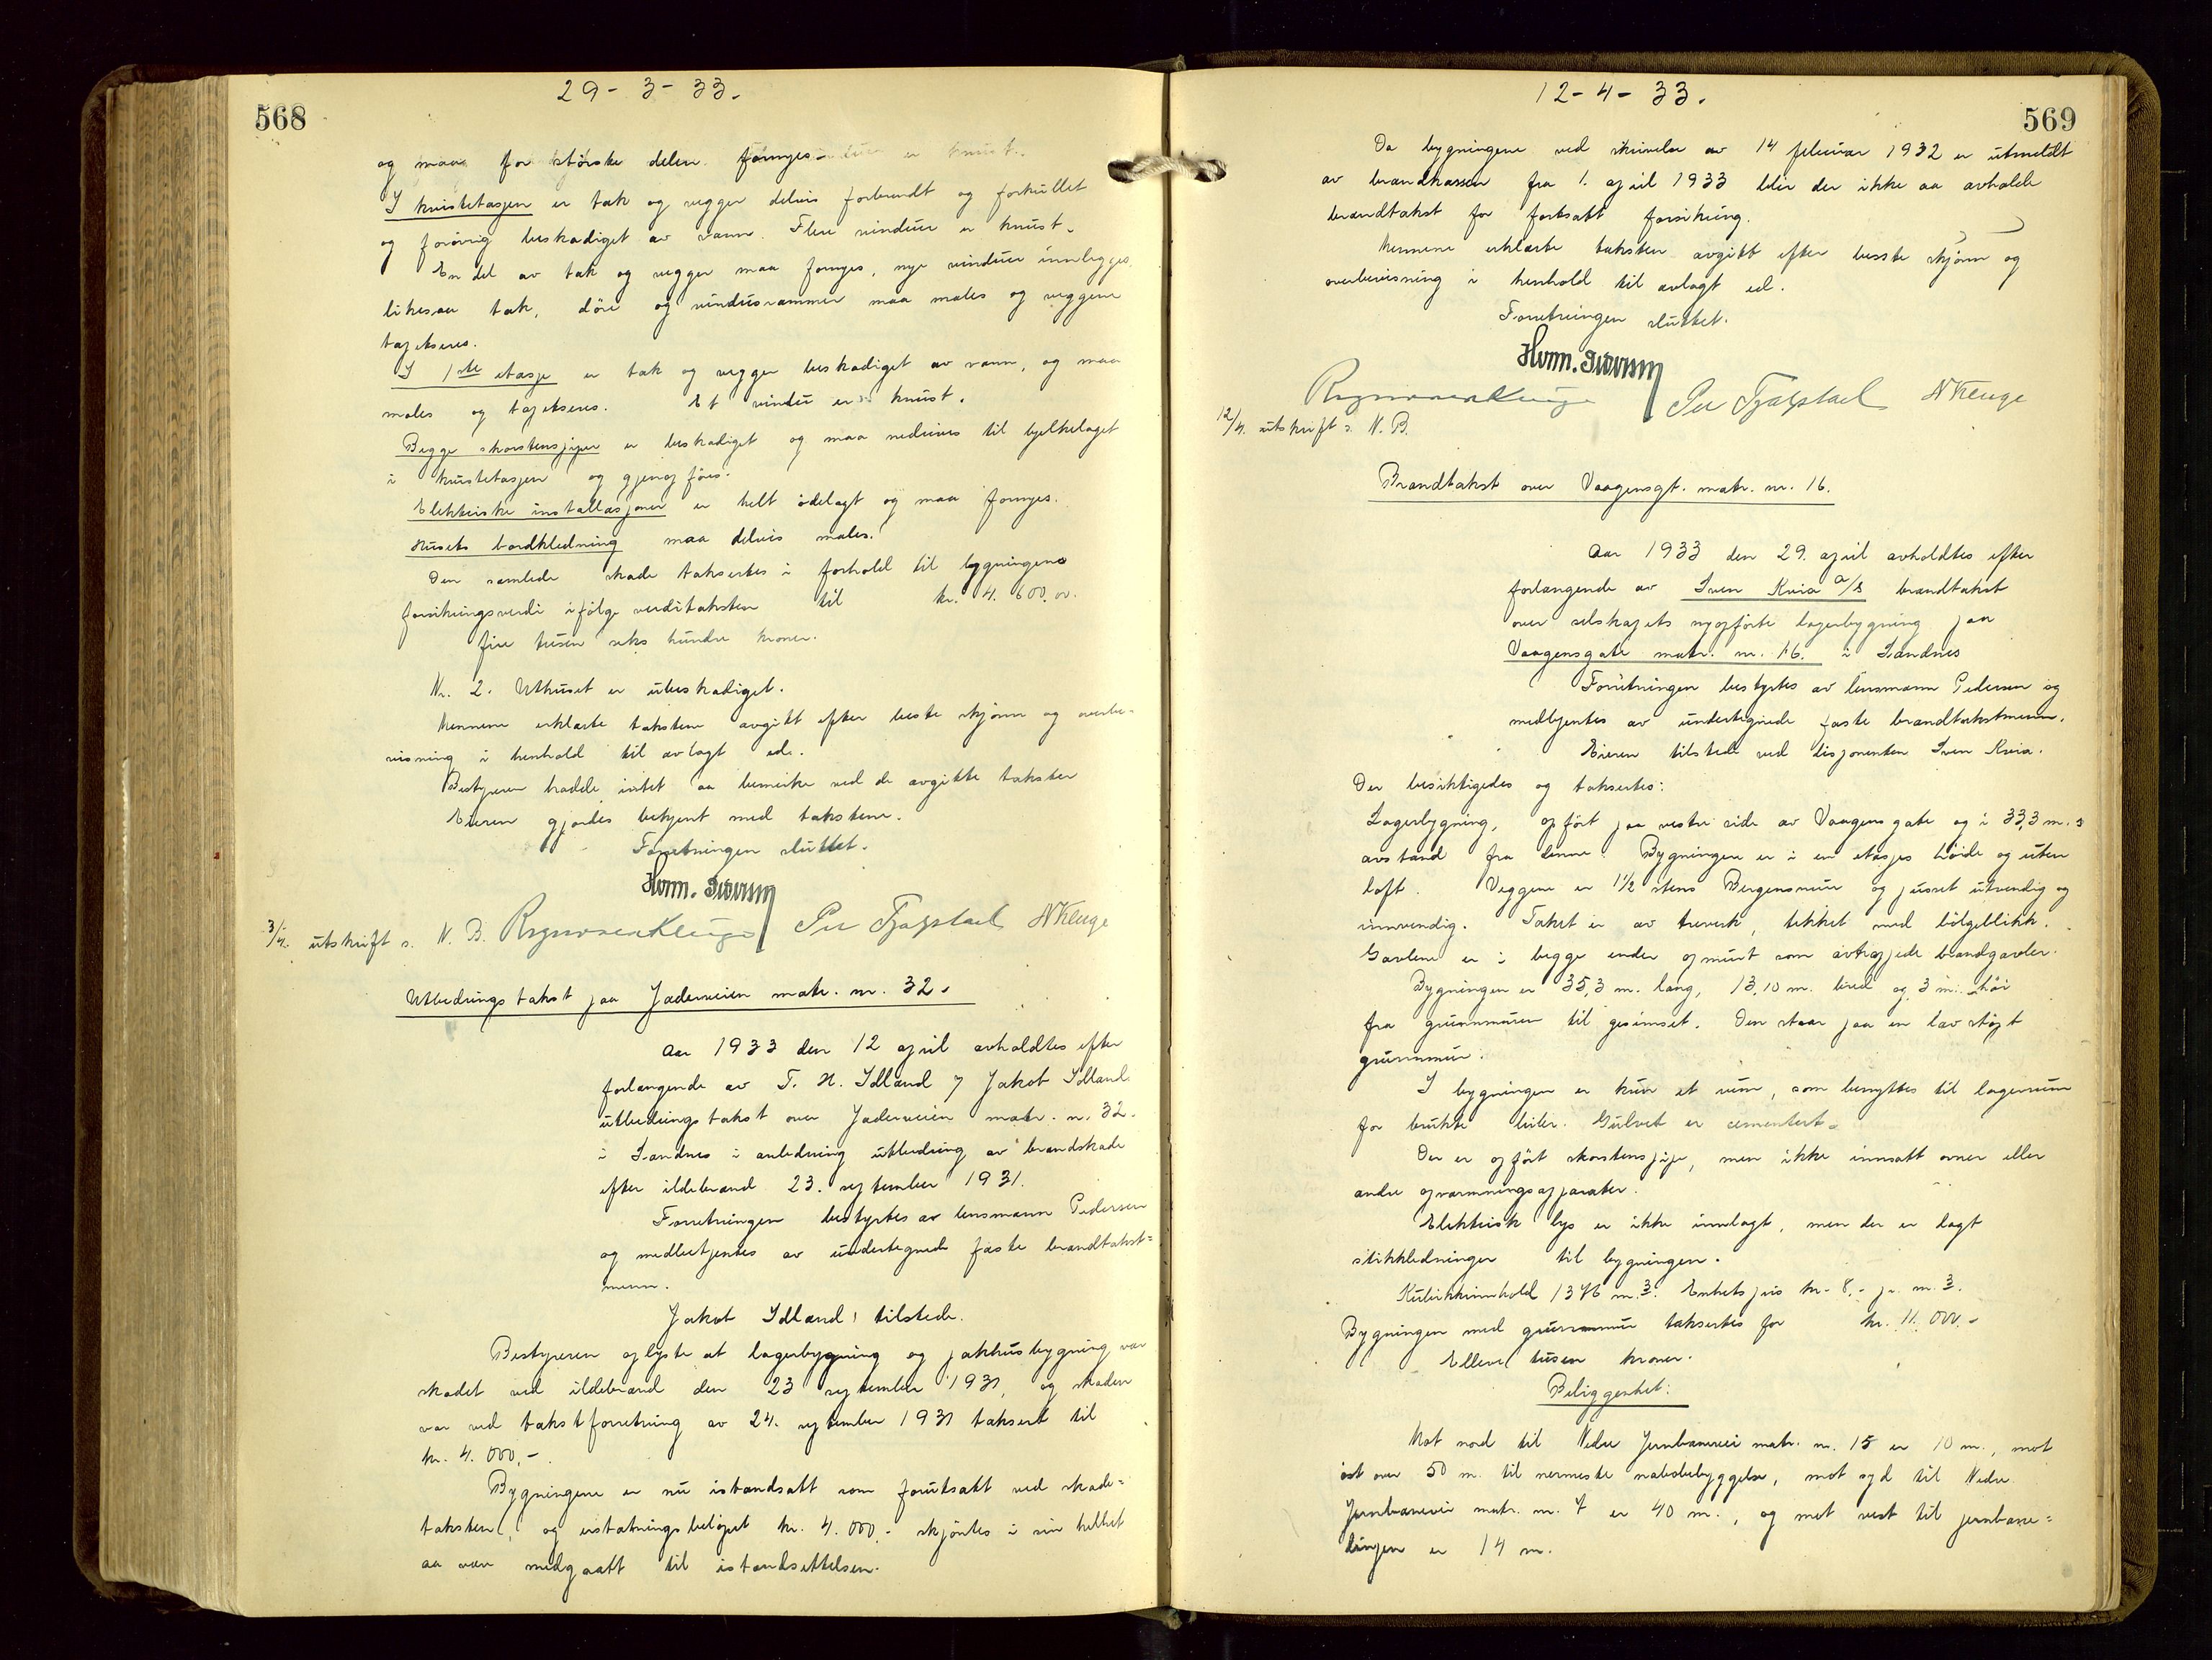 568
29-3-33.
og maa for største delen fornyes
I kvistetasjen er tak og vegger delvis forbrendt og forkullet
og forøvrig beskadiget av vann. Flere vinduer er knust.
En del av tak og vegger maa fornyes, nye vinduer innlegges,
likesaa tak, döre og vindusrammer maa males og veggene
tapetseres.
I 1ste etasje er tak og vegger beskadiget av vann, og maa
males og tapetseres. Et vindu er knust.
Begge skorstenspiper er beskadiget og maa nedrives til bjelkelaget
i kvistetasjen og gjenopföres.
Elektriske installasjoner er helt ödelagt og maa fornyes.
Husets bordkledning maa delvis males.
Den samlede skade taksertes i forhold til bygningens
forsikringsverdi ifölge verditaksten til kr. 4.600.00.
fire tusen seks hundre kroner.
Nr. 2. Uthuset er ubeskadiget.
Mennene erklærte takstene avgitt efter beste skjönn og overbe-
visning i henhold til avlagt ed.
Bestyreren hadde intet aa bemerke ved de avgitte takster
Eieren gjordes bekjent med takstene.
Forretningen sluttet.
3/4. utskrift s. N. B. Per Fjogstad N Kluge
Utbedringstakst paa Jaderveien matr. nr. 32.
Aar 1933 den 12 april avholdtes efter
forlangende av T. H. Idland & Jakob Idland
utbedringstakst over Jaderveien matr. nr. 32.
i Sandnes i anledning utbedring av brandskade
efter ildebrand 23. september 1931.
Forretningen bestyrtes av lensmann Pedersen
og medbetjentes av undertegnede faste brandtakst=
menn.
Jakob Idland tilstede.
Bestyreren oplyste at lagerbygning og pakkhusbygning var
skadet ved ildebrand den 23 september 1931, og skaden
var ved takstforretning av 24. september 1931 taksert til
kr. 4.000,-.
Bygningene er nu istandsatt som forutsatt ved skade=
taksten, og erstatningsbelöpet kr. 4.000,- skjöntes i sin helhet
aa være medgaatt til istandsettelsen.
569
12-4-33.
Da bygningene ved skrivelse av 14 februar 1932 er utmeldt
av brandkassen fra 1. april 1933 blir der ikke aa avholde
brandtakst for fortsatt forsikring.
Mennene erklærte taksten avgitt efter beste skjönn og
overbevisning i henhold til avlagt ed.
Forretningen sluttet.
Per Fjogstad N Kluge
12/4. utskrift s. N. B.
Brandtakst over Vaagensgt. matr. nr. 16.
Aar 1933 den 29. april avholdtes efter
forlangende av Sven Kvia a/s brandtakst
over selskapets nyopförte lagerbygning paa
Vaagensgate matr. nr. 16. i Sandnes
Forretningen bestyrtes av lensmann Pedersen og
medbetjentes av undertegnede faste brandtakstmenn.
Eieren tilstede ved disponenten Sven Kvia.
Der besiktigedes og taksertes:
Lagerbygning, opfört paa vestre side av Vaagens gate og i 33,3 m.s
avstand fra denne. Bygningen er i en etasjes höide og uten
loft. Veggene er 1½ stens Bergensmur og pusset utvendig og
innvendig. Taket er av treverk, tekket med bölgeblikk.
Gavlene er i begge ender opmurt som avtrappede brandgavler.
Bygningen er 35,3 m. lang, 13,10 m. bred og 3 m. höi
fra grunnmuren til gesimset. Den staar paa en lav stöpt
grunnmur.
I bygningen er kun et rum, som benyttes til lagerrum
for brukte biler. Gulvet er cementert.
Der er opfört skorstenspipe, men ikke innsatt ovner eller
andre opvarmningsapparater.
Elektrisk lys er ikke innlagt, men der er lagt
stikkledninger til bygningen.
Kubikkinnhold 1376 m.3. Enhetspris kr. 8,- pr. m.3.
Bygningen med grunnmur taksertes for kr. 11.000.-
Elleve tusen kroner.
Beliggenhet:
Mot nord til Nedre Jernbanevei matr. nr. 15 er 10 m., mot
öst over 50 m. til nermeste nabobebyggelse, mot syd til Nedre
Jernbanevei matr. nr. 7 er 40 m., og mot vest til jernbane=
linjen er 14 m.